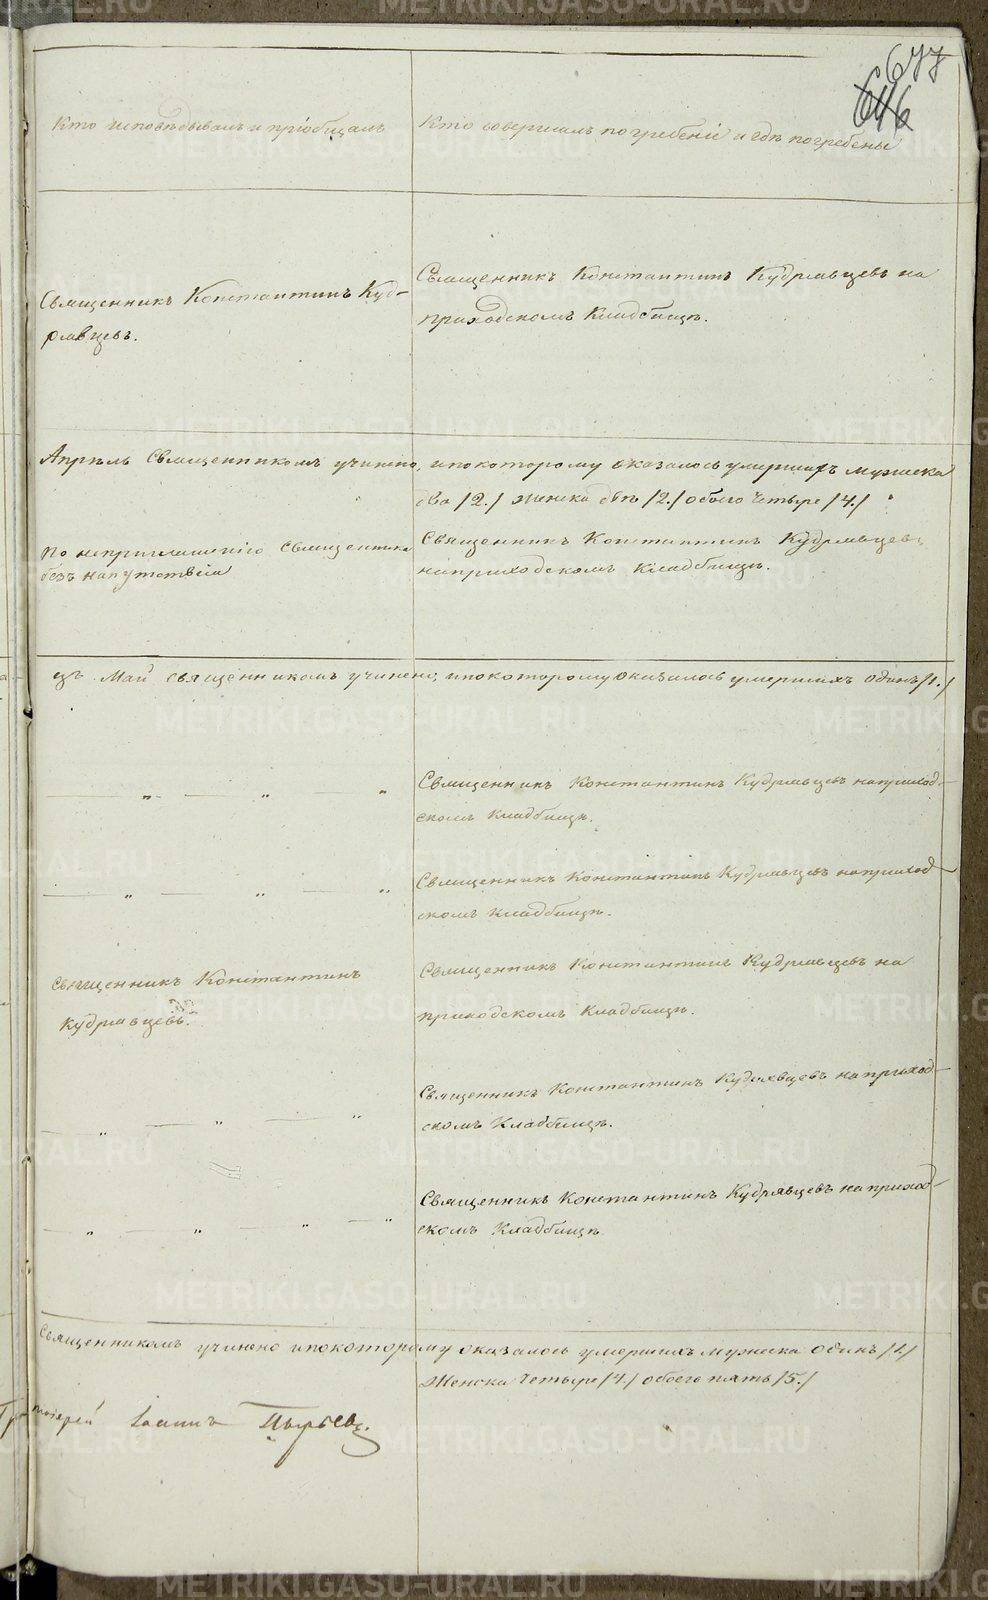 677
646
Кто исповѣдывалъ и пріобщалъ
Кто совершалъ погребеніе и гдѣ погребены
Священникъ Константинъ Куд-
рявцевъ.
Священникъ Константинъ Кудрявцевъ на
приходскомъ Кладбищѣ.
Апрѣль Священникомъ учинено, и по которому оказалось умершихъ мужеска
два /2./ Женска двѣ /2./ обоего Четыре /4./
По неприглашенію Священника
безъ напутствія
Священникъ Константинъ Кудрявцевъ
на приходскомъ Кладбищѣ.
цъ Май священникомъ учинено, и по которому оказалось умершихъ одинъ /1./
Священникъ Константинъ Кудрявцевъ на приход-
скомъ Кладбищѣ.
Священникъ Константинъ Кудрявцевъ на приход-
скомъ Кладбищѣ.
Священникъ Константинъ
Кудрявцевъ.
Священникъ Константинъ Кудрявцевъ на
приходскомъ Кладбищѣ.
Священникъ Константинъ Кудрявцевъ на приход-
скомъ Кладбищѣ.
Священникъ Константинъ Кудрявцевъ на приход-
скомъ Кладбищѣ
Священникомъ учинено и по которому оказалось умершихъ мужеска одинъ /1./
Женска Четыре /4./ обоего пять /5./
Іоаннъ
METRIKI.GASO-URAL.RU